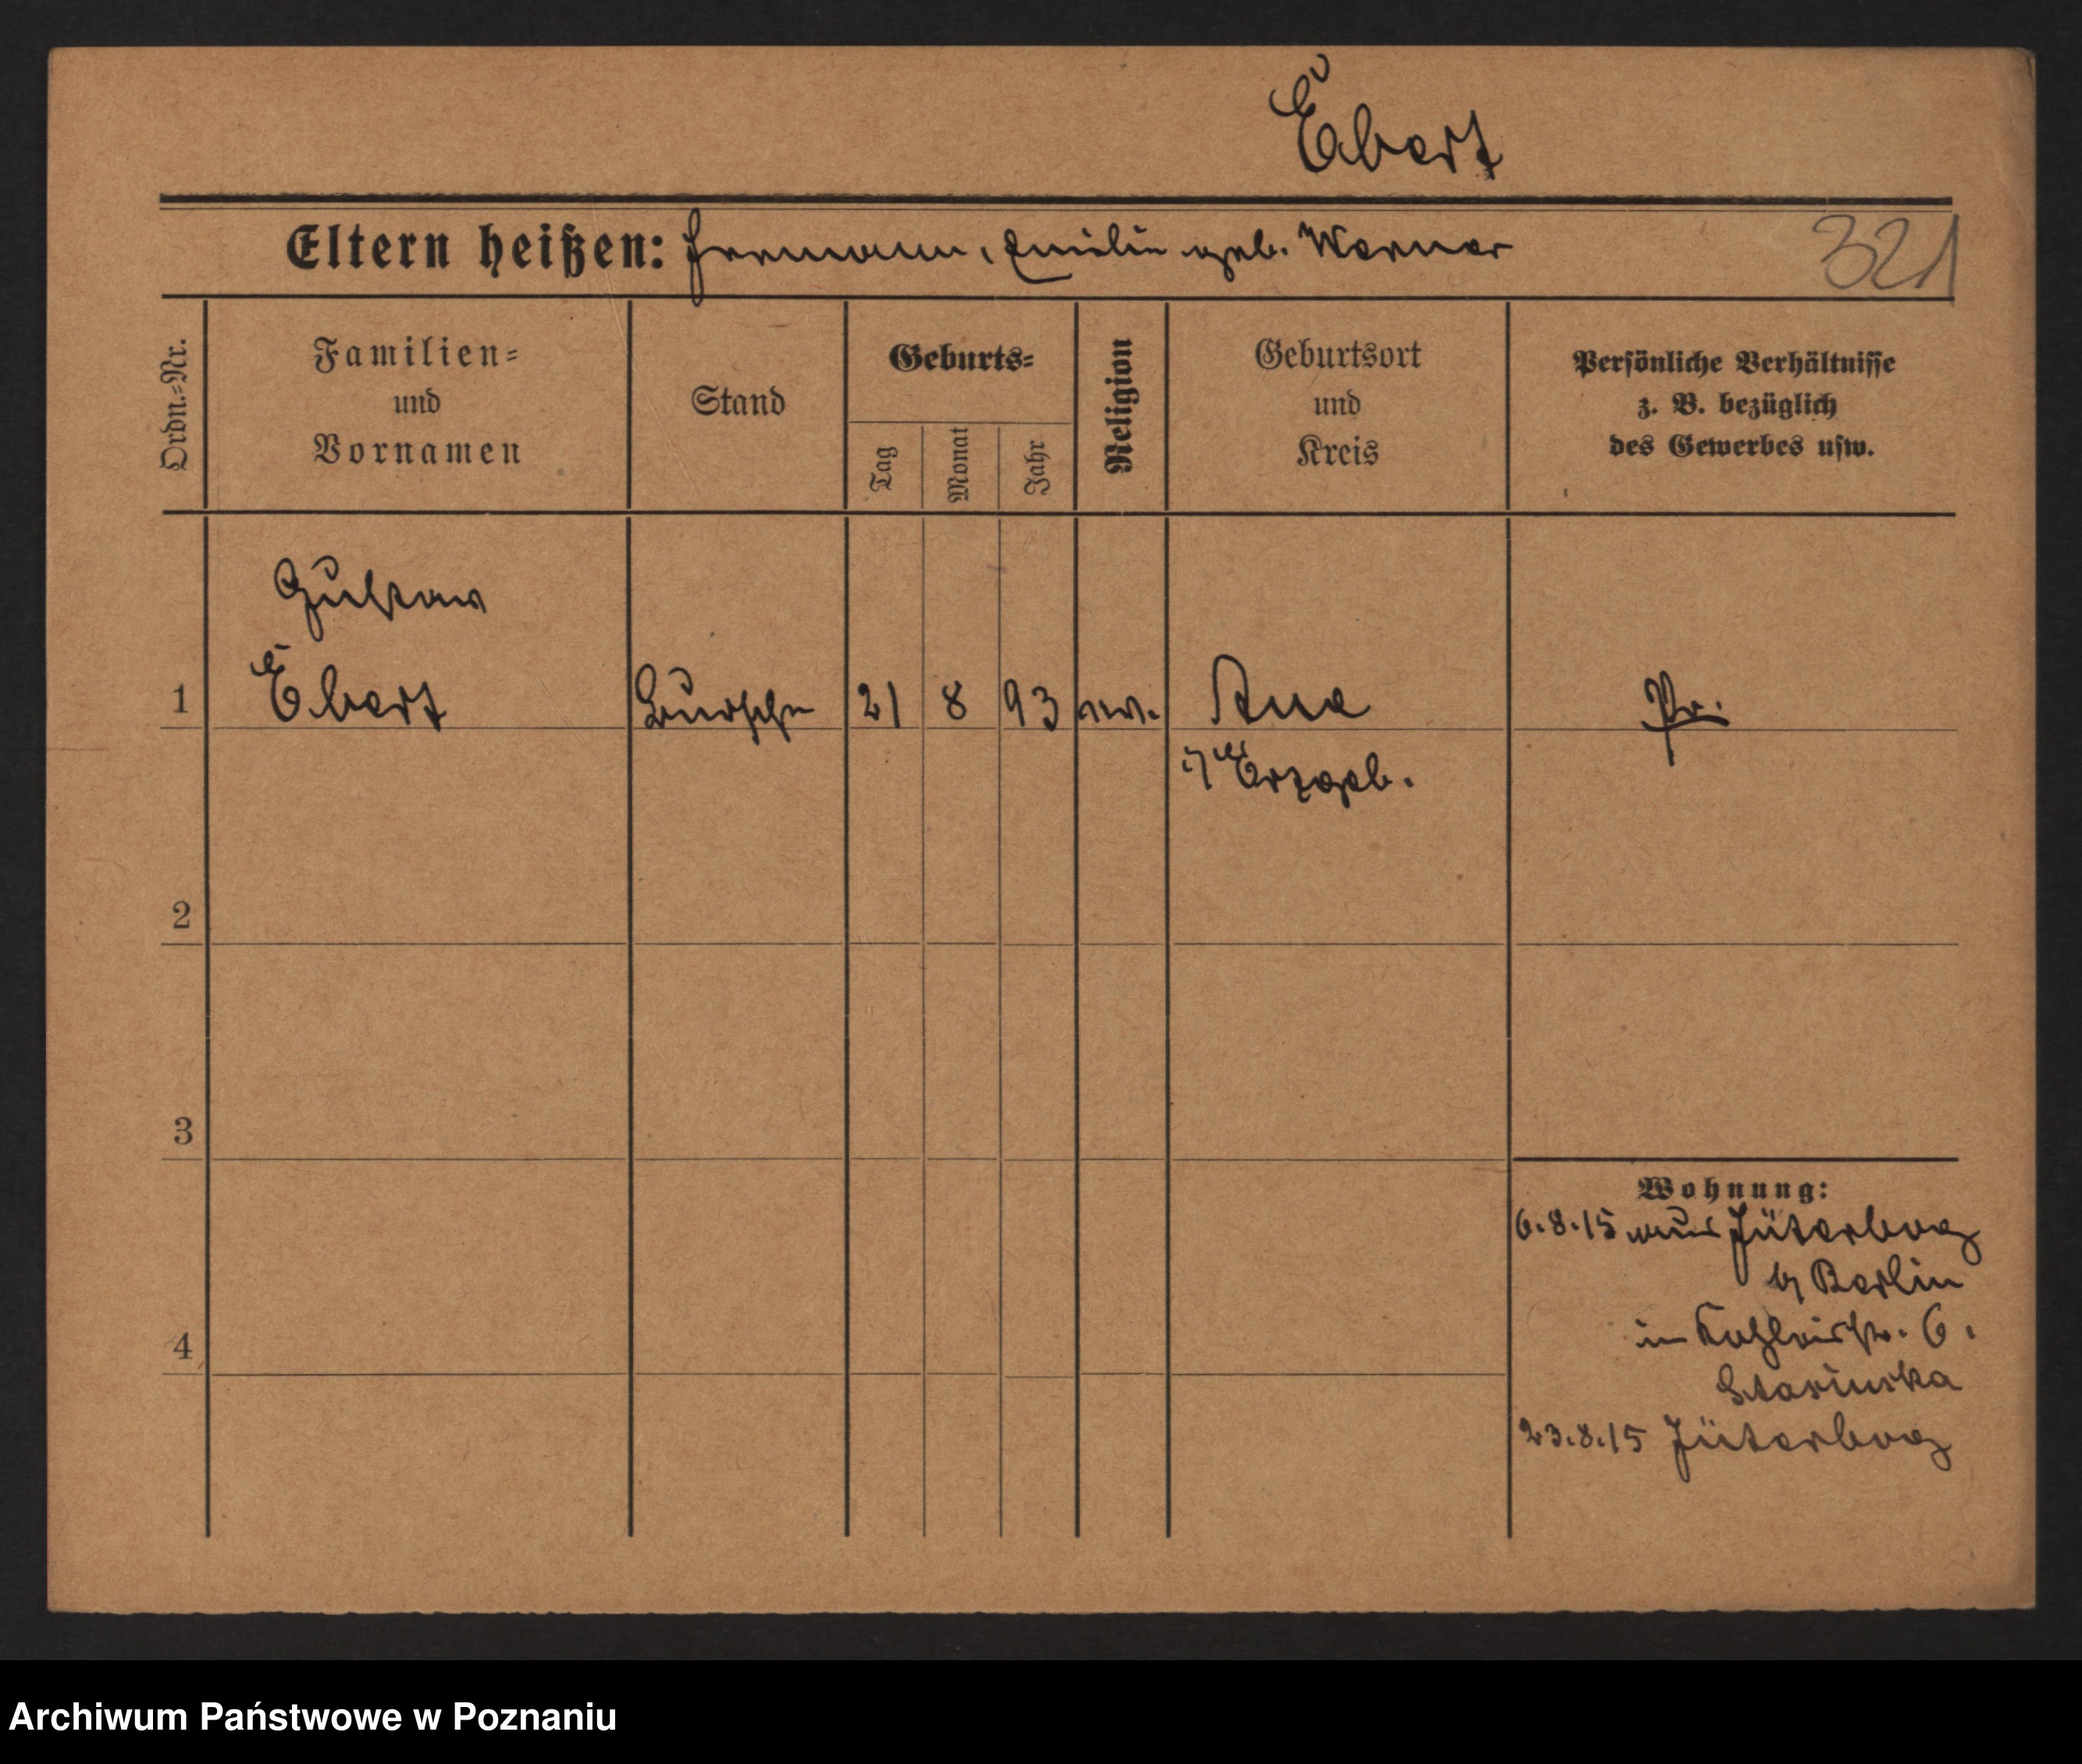 Ebert
Eltern heißen: Hermann, Emilie geb. Werner
321
Ordn.=Nr.
Familien=
und
Vornamen
Stand
Geburts=
Tag
Monat
Jahr
Religion
Geburtsort
und
Kreis
Persönliche Verhältnisse
z. B. bezüglich
des Gewerbes usw.
Gustav
1 Ebert Bursche 21 8 93 ev. Aue Pr.
i/ Erzgeb.
2
3
4
Wohnung:
6.8.15 aus Jüterbog
b/ Berlin
in 6.
23.8.15 Jüterbog
Archiwum Państwowe w Poznaniu